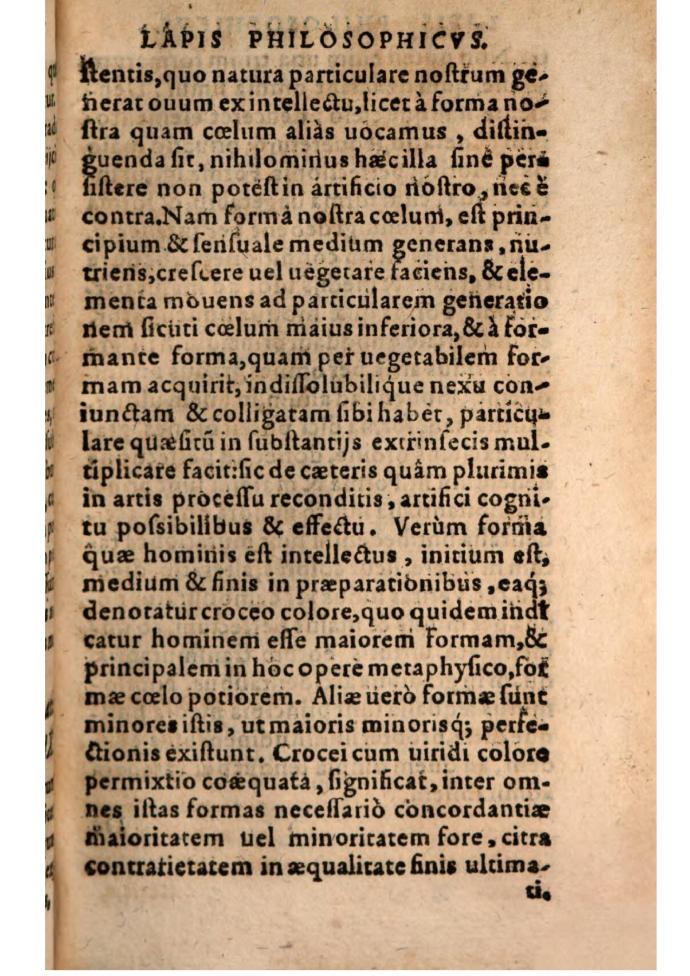 LAPIS PHILOSOPHICVS.
ſtentis, quo natura particulare noſtrum ge-
nerat ouum ex intellectu, licet à forma no-
ſtra quam cœlum aliàs uocamus , diſtin-
guenda ſit, nihilominus hæc illa ſine per-
ſiſtere non poteſt in artificio noſtro, nec è
contra. Nam forma noſtra cœlum, eſt prin-
cipium & ſenſuale medium generans, nu-
triens, creſcere uel uegetare faciens, & ele-
menta mouens ad particularem generatio
nem ſicuti cœlum maius inferiora, & à for-
mante forma, quam per uegetabilem for-
mam acquirit, indiſſolubilique nexu con-
iunctam & colligatam ſibi habet, particu-
lare quæſitū in ſubſtantijs extrinſecis mul-
tiplicare facit: ſic de cæteris quâm plurimis
in artis proceſſu reconditis, artifici cogni-
tu poſsibilibus & effectu. Verùm forma
quæ hominis eſt intellectus , initium eſt,
medium & finis in præparationibus, eaq;
denotatur croceo colore, quo quidem indi
catur hominem eſſe maiorem formam, &
principalem in hoc opere metaphyſico, for
mæ cœlo potiorem. Aliæ uerò formæ ſunt
minores iſtis, ut maioris minorisq; perfe-
ctionis exiſtunt. Crocei cum uiridi colore
permixtio coæquata, ſignificat, inter om-
nes iſtas formas neceſſariò concordantiæ
maioritatem uel minoritatem fore, citra
contrarietatem in æqualitate finis ultima-
ti.